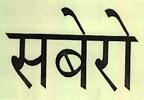 सबेरो